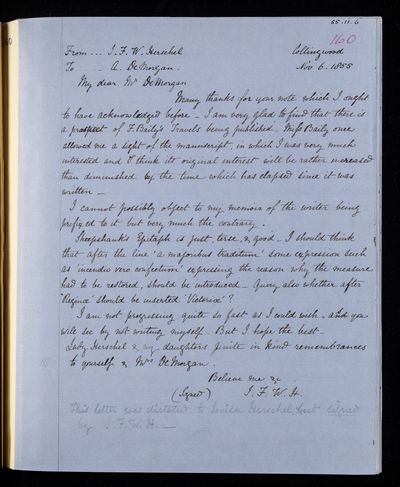 55.11.6
160
From ... J. F. W. Herschel Collingwood
To - A. DeMorgan. Nov 6. 1855
My dear Mr DeMorgan
Many thanks for your note which I ought
to have acknowledged before - I am very glad to find that there is
a prospect of F. Baily's Travels being published. Miss Baily once
allowed me a sight of the manuscript, in which I was very much
interested and I think its original interest will be rather increased
than diminished by the time which has elapsed since it was
written -
I cannot possibly object to my memoir of the writer being
prefixed to it but very much the contrary.
Sheepshanks Epitaph is just, terse, & good. I should think
that after the line 'a majoribus traditum' some expression such
as 'incendio vero confectum' expressing the reason why the measure
had to be restored, should be introduced - Query also whether after
'Reginæ' should be inserted 'Victoriæ'?
I am not progressing quite so fast as I could wish - and you
will see by not writing myself. But I hope the best -
Lady Herschel & my daughters unite in kind remembrances
to yourself & Mrs DeMorgan.
Believe me &c
(Signed) J. F. W. H.
This letter was dictated to Louisa Herschel, but signed
by J. F. W. H.